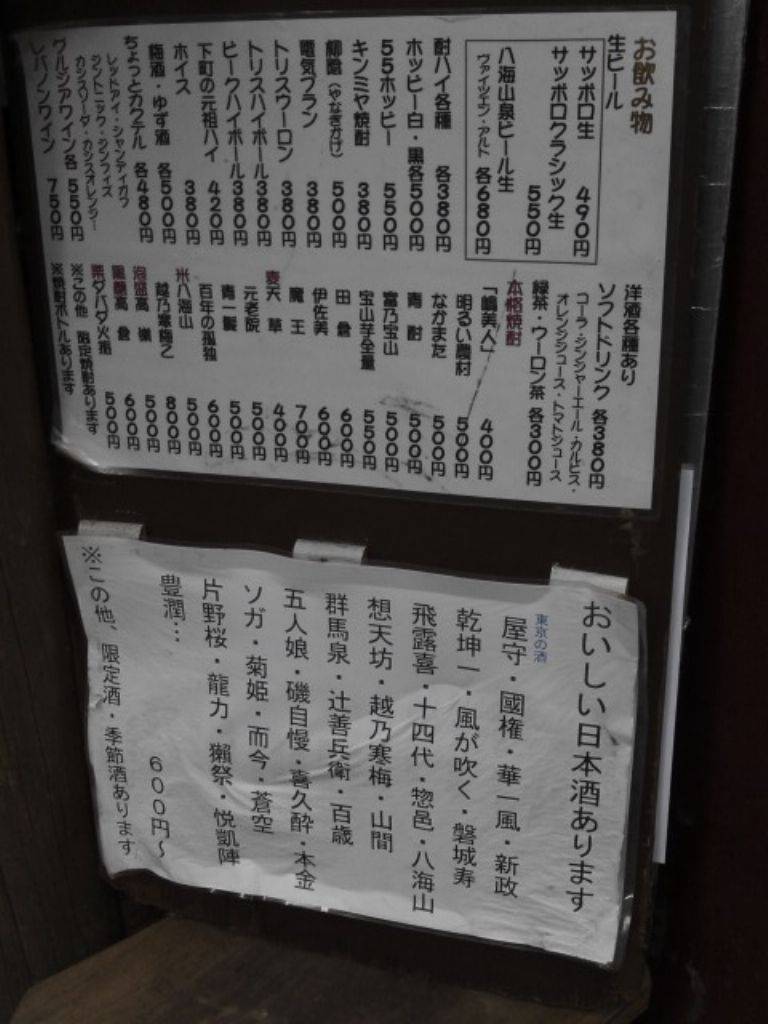 お飲み物
生ビール
サッポロ生 490円
サッポロクラシック生 550円
八海山泉ビール生
ヴァイツェン・アルト 各680円
酎ハイ各種 各380円
ホッピー白・黒各500円
55ホッピー 550円
キンミヤ焼酎 380円
柳陰(やなぎかげ) 500円
電気ブラン 380円
トリスウーロン 380円
トリスハイボール 380円
ピークハイボール 380円
下町の元祖ハイ 420円
ホイス 380円
梅酒・ゆず酒 各500円
ちょっとカクテル 各480円
レッドアイ・シャンディガフ
ジントニック・ジンフィズ
カシスソーダ・カシスオレンジ…
グルジアワイン各 550円
レバノンワイン 750円
洋酒各種あり
ソフトドリンク 各380円
コーラ・ジンジャーエール・カルピス・
オレンジジュース・トマトジュース
緑茶・ウーロン茶 各300円
本格焼酎
「島美人」 400円
明るい農村 500円
なかまた 500円
青酎 500円
富乃宝山 500円
宝山芋全量 550円
田倉 600円
伊佐美 600円
魔王 700円
麦 天草 400円
元老院 500円
青一髪 500円
百年の孤独 600円
米 八海山 500円
越乃寒梅乙 800円
泡盛 500円
黒糖 高倉 600円
栗 ダバダ火振 500円
※この他 限定焼酎あります
※焼酎ボトルあります
おいしい日本酒あります
東京の酒
屋守・國権・華一風・新政
乾坤一・風が吹く・磐城寿
飛露喜・十四代・惣邑・八海山
想天坊・越乃寒梅・山間
群馬泉・辻善兵衛・百歳
五人娘・磯自慢・喜久酔・本金
ソガ・菊姫・而今・蒼空
片野桜・龍力・獺祭・悦凱陣
豊潤…
600円〜
※この他、限定酒・季節酒あります